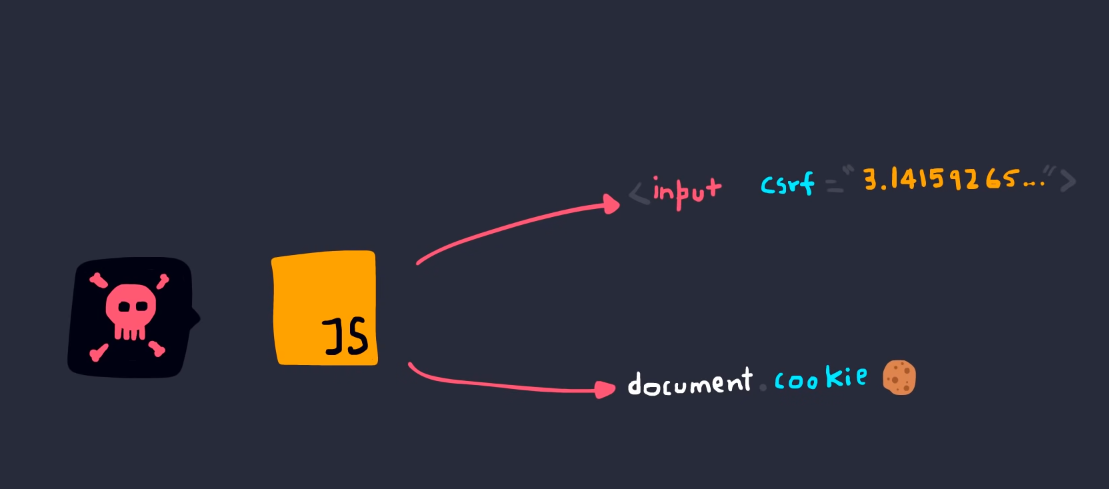 <input csrf="3.14159265...">
JS
document.cookie